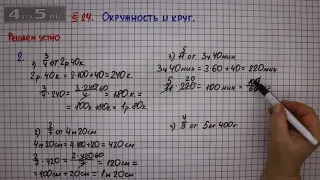 4AS.RU
§ 24. Окружность и круг.
Решаем устно
2.
1) 3/4 от 2р 40к.
2р. 40к. = 2·100+40 = 240к.
3/4 · 240 = 3·240/4 = 180к. =
= 100к+80к = 1р. 80к.
2) 2/7 от 4м 20см
4м 20см = 4·100+20 = 420см
2/7 · 420 = 2·420 60/7 = 120см =
= 100см + 20см = 1м 20см
3) от 3ч 40мин
3ч 40мин = 3·60+40 = 220мин
5/11 · 220 = 100мин =
4) 4/9 от 5кг 400г